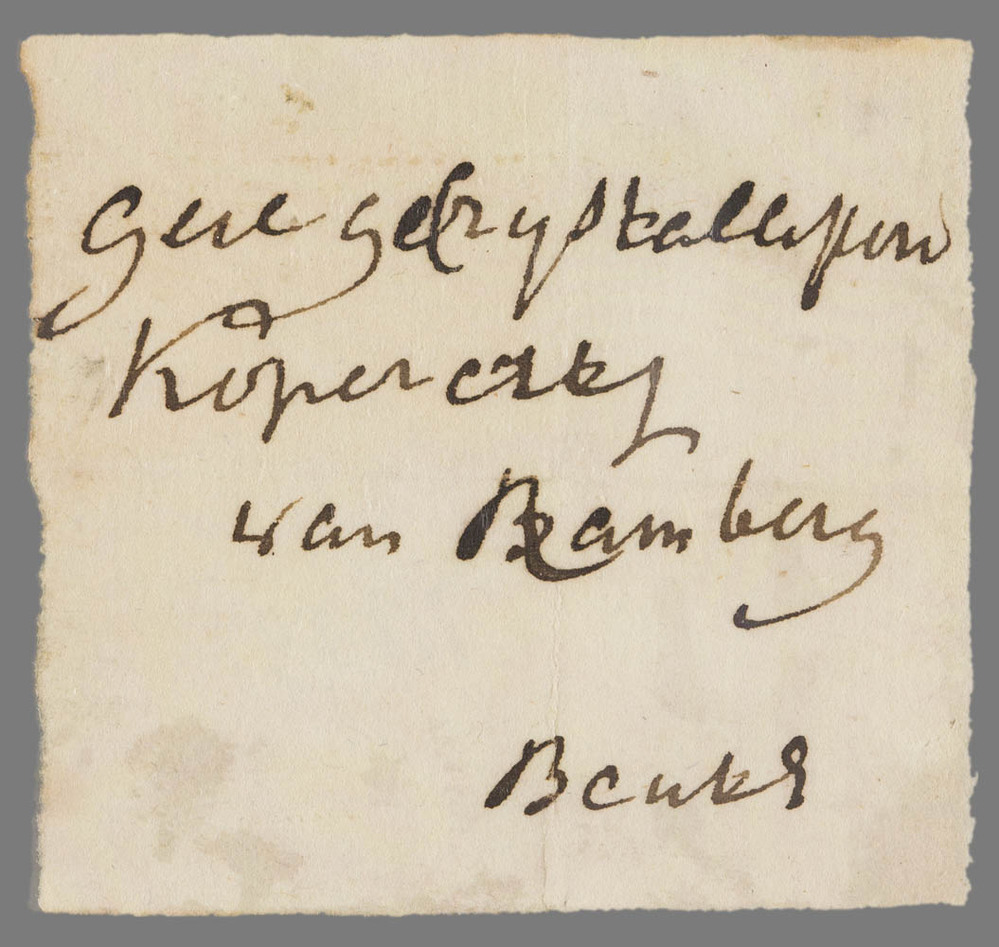 geele gekrystalliseerd
Koper erts
van Bamberg
Beuke